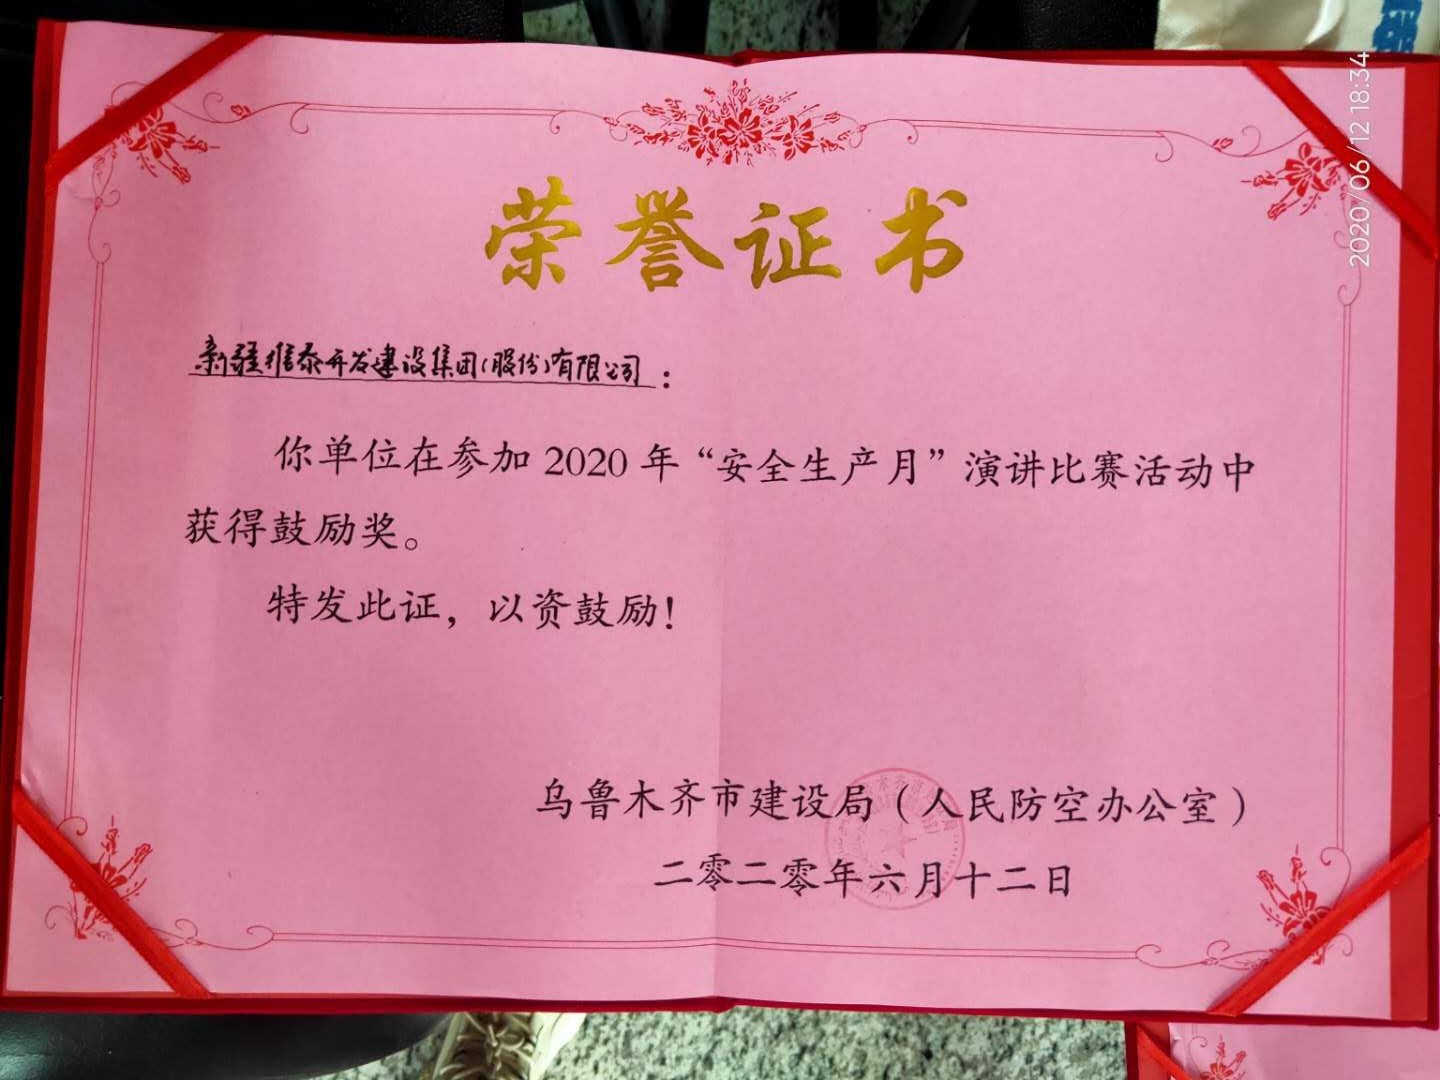 荣誉证书
新疆维泰开发建设集团(股份)有限公司:
你单位在参加 2020 年“安全生产月”演讲比赛活动中
获得鼓励奖。
特发此证，以资鼓励!
乌鲁木齐市建设局（人民防空办公室）
二零二零年六月十二日
2020/06/12 18:34